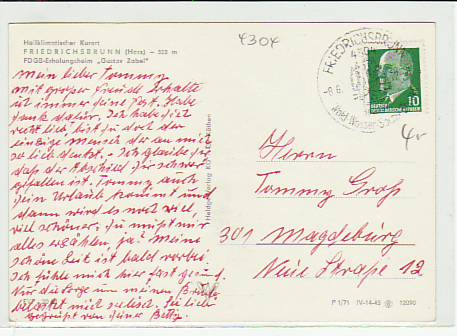 4304
Heilklimatischer Kurort
FRIEDRICHSBRUNN (Harz) — 522 m
FDGB-Erholungsheim „Gustav Zabel"
Mein lieber Tommy
Mit großer Freude erhalte
ich immer deine Post. Habe
dank dafür. Ich habe dich
recht lieb, bist ja doch der
einzige Mensch der an mich
so lieb denkt. Ich glaube dir
daß der Abschied dir schwer
gefallen ist. Tommy auch
dein Urlaub kommt und
dann wird es noch viel,
viel schöner. Du mußt mir
alles erzählen, ja? Meine
schöne Zeit ist bald vorbei.
Ich fühle mich hier fast gesund.
Nur die Sorge um meinen
mich seelisch. Sei lieb
gegrüßt von deiner Betty
FRIEDRICHSBRUNN
DEUTSCHE
DEMOKRATISCHE REPUBLIK
10
Herrn
Tommy Groß
301 Magdeburg
Neue Straße 12
P 1/71 IV-14-45 12090